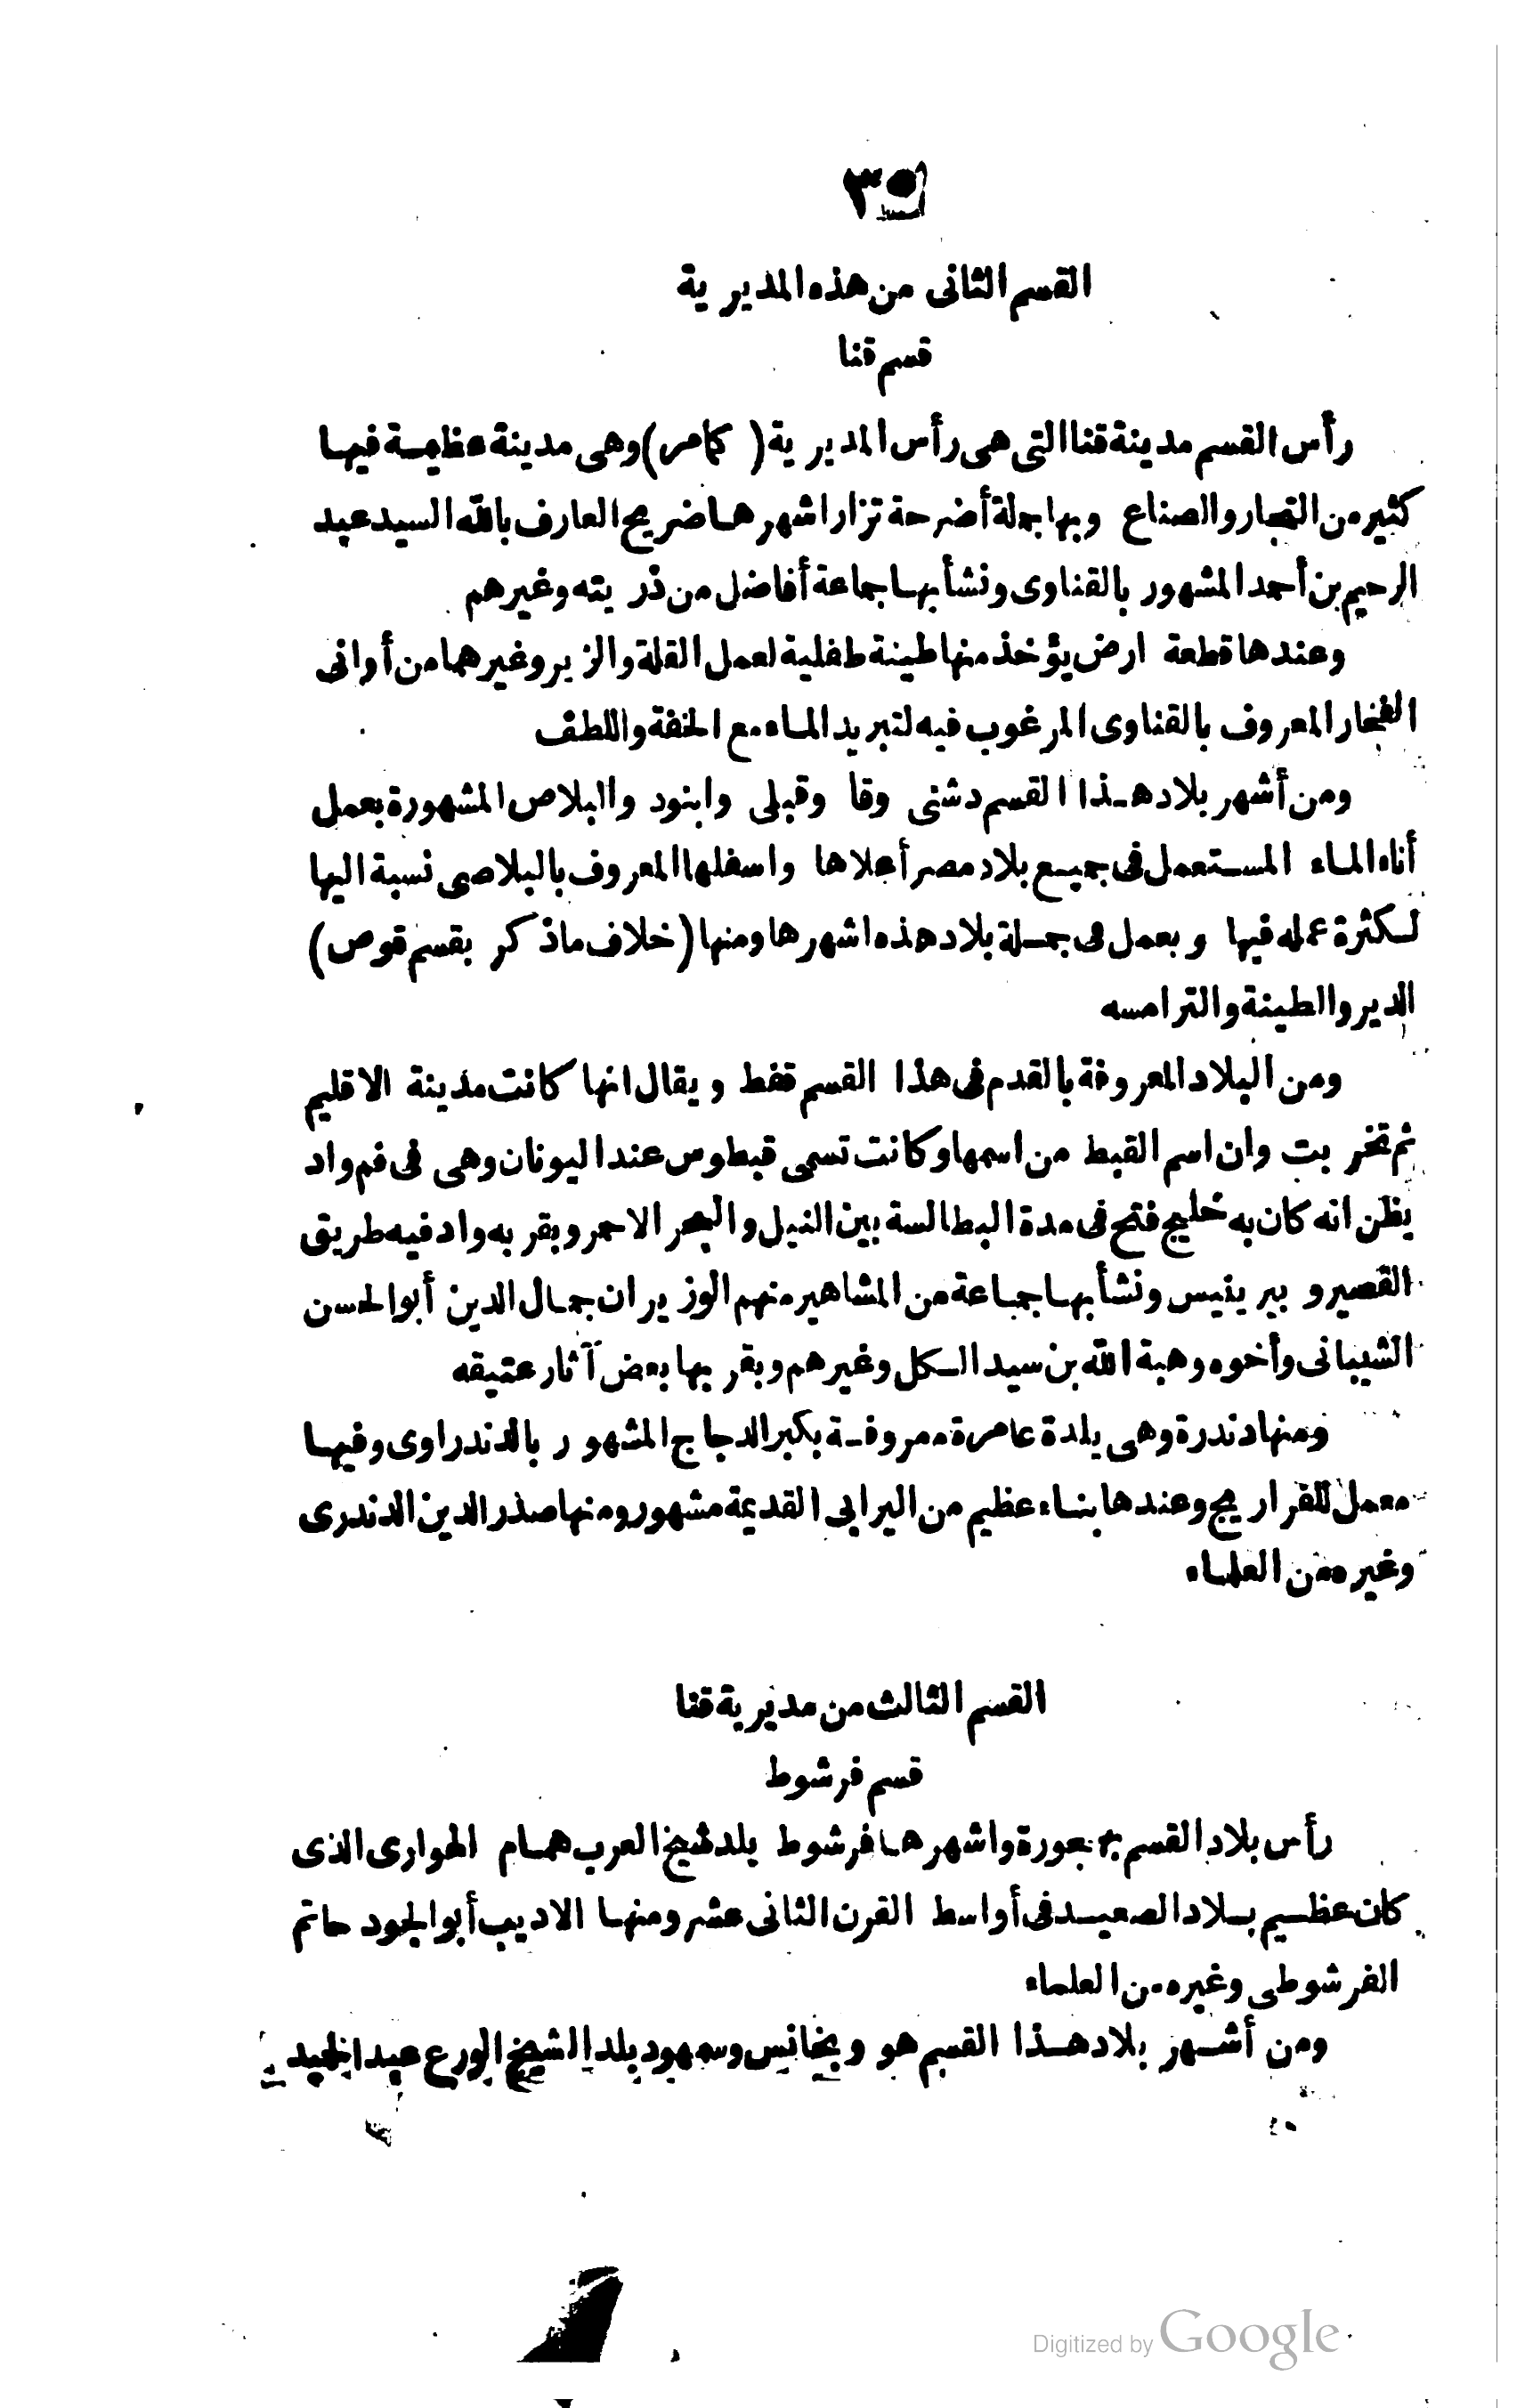 ٣٥
القسم الثانى من هذه المديرية
قسم قنا
رأس القسم مدينة قنا التى هى رأس المديرية ( كمامر) وهى مدينة عظيمة فيها
كثير من التجار والصناع وبها جملة أضرحة تزار اشهرها ضريح العارف بالله السيد عبد
الرحيم بن أحمد المشهور بالقناوى ونشأ بها جماعة أفاضل من ذريته وغيرهم
وعندها قطعة ارض يؤخذ منها طينة طفلية لعمل القلة والزير وغيرهما من أوانى
الفخار المعروف بالقناوى المرغوب فيه لتبريد الماء مع الخفة واللطف
ومن أشهر بلاد هذا القسم دشنى وقا وقبلى وابنود والبلاص المشهورة بعمل
أناء الماء المستعمل فى جميع بلاد مصر أعلاها واسفلها المعروف بالبلاصى نسبة اليها
لكثرة عمله فيها ويعمل فى جملة بلاد هذه اشهرها ومنها (خلاف ماذكر بقسم قوص)
الدير والطينة والترامسه
ومن البلاد المعروفة بالقدم فى هذا القسم قفط ويقال انها كانت مدينة الاقليم
ثم تخربت وان اسم القبط من اسمها وكانت تسمى قبطوس عند اليونان وهى فى فم واد
يظن انه كان به خليج فتح فى مدة البطالسة بين النيل والبحر الاحمر وبقربه واد فيه طريق
القصير وبيرينيس ونشأ بها جماعة من المشاهير منهم الوزيران جمال الدين أبو الحسن
الشيبانى وأخوه وهبة الله بن سيد الكل وغيرهم وبقربها بعض آثار عتيقه
ومنها دندرة وهى بلدة عامرة معروفة بكبر الدجاج المشهور بالدندراوى وفيها
معمل للفراريج وعندها بناء عظيم من البرابى القديمة مشهور ومنها صدر الدين الدندرى
وغيره من العلماء
القسم الثالث من مديرية قنا
قسم فرشوط
رأس بلاد القسم بهجورة واشهرها فرشوط بلد شيخ العرب همام الهوارى الذى
كان عظيم بلاد الصعيد فى أواسط القرن الثانى عشر ومنها الاديب أبو الجود حاتم
الفرشوطى وغيره من العلماء
ومن أشهر بلاد هذا القسم هو وبخانس وسمهود بلد الشيخ الورع عبد
Digitized by Google